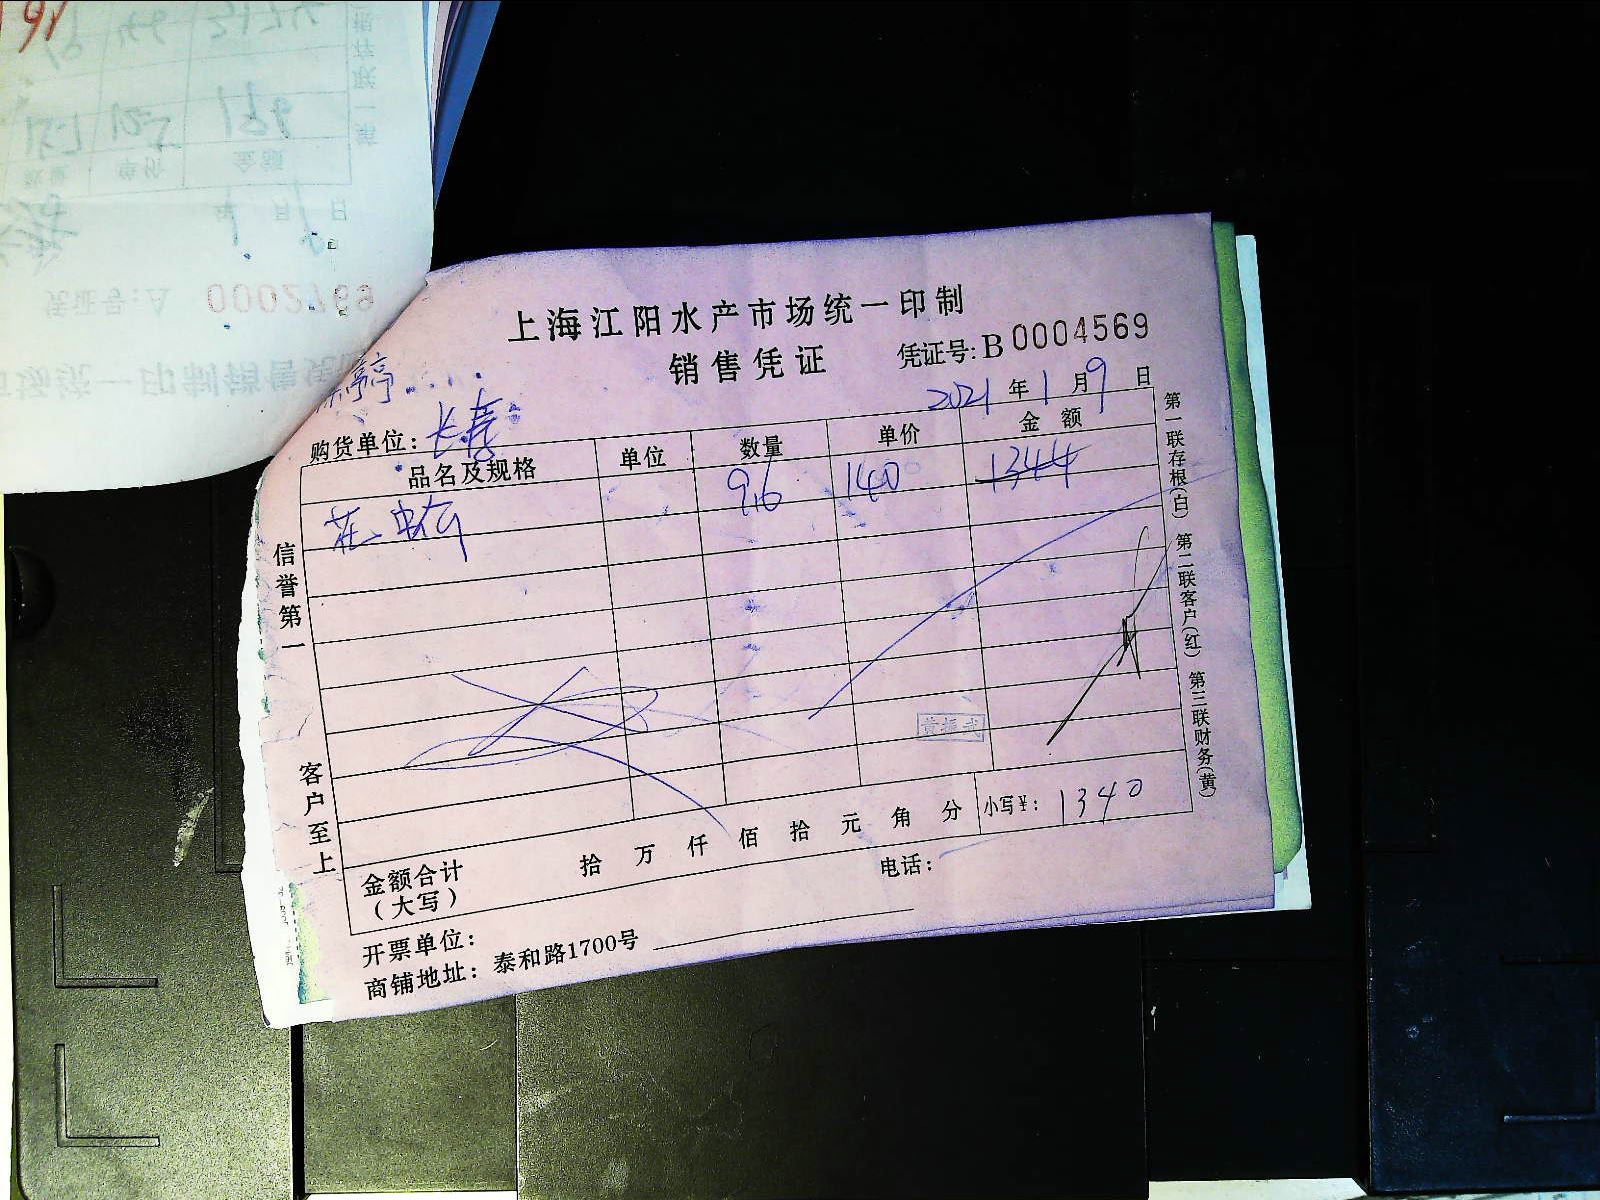 上海江阳水产市场统一印制
销售凭证
凭证号:B 0004569
2021 年 1 月 9 日
购货单位:
品名及规格 单位 数量 单价 金额
花 9.6 140 1344
信誉第一
客户至上
第一联存根(白) 第二联客户(红) 第三联财务(黄)
黄振武
金额合计(大写) 拾 万 仟 佰 拾 元 角 分 小写¥: 1340
开票单位: 电话:
商铺地址: 泰和路1700号
凭证号:A 0002769
年 月 日
数量 单价 金额